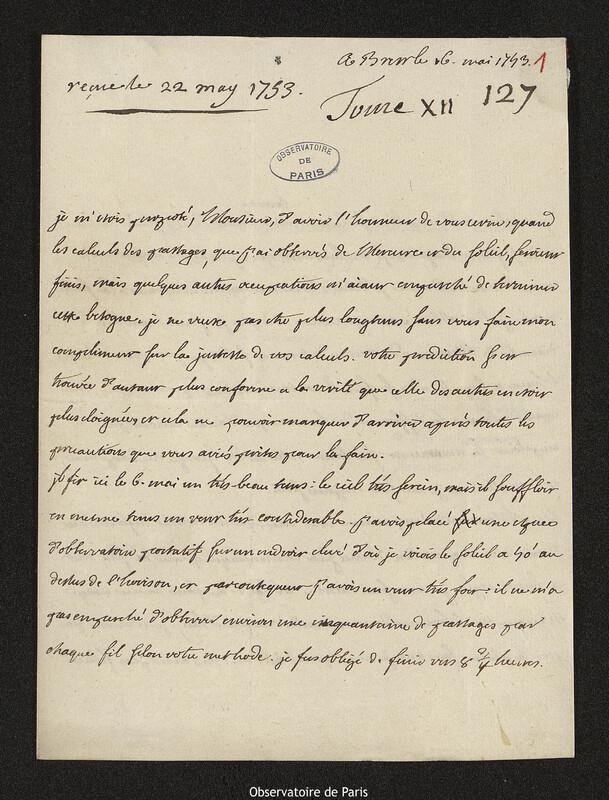 A Basle 16. mai 1753. 1
reçue le 22 may 1753.
Tome XII 127
OBSERVATOIRE
DE
PARIS
je m'etois proposé, Monsieur, d'avoir l'honneur de vous ecrire, quand
les calculs des passages, que j'ai observés de Mercure et du soleil, seroient
finis, mais quelques autres occupations m'aiant empeché de terminer
cette besogne, je ne veux pas etre plus longtems sans vous faire mon
compliment sur la justesse de vos calculs. votre prediction s'est
trouvée d'autant plus conforme a la verité que celle des autres en etoit
plus eloignée, et cela ne pouvoit manquer d'arriver après toutes les
precautions que vous aviés prises pour la faire.
il fit ici le 6. mai un très beau tems: le ciel très serein, mais il souffloit
en meme tems un vent très considerable. j'avois placé une espece
d'observatoire portatif sur un endroit elevé d'où je voiois le soleil a 40' au
dessus de l'horison, et par consequent j'avois un vent très fort: il ne m'a
pas empeché d'observer environ une cinquantaine de passages par
chaque fil selon votre methode. je fus obligé de finir vers 8 3/4 heures.
Observatoire de Paris